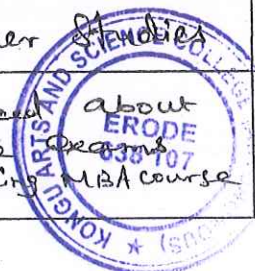 er Studies
ed about
Exams
ing MBA course
KONGU ARTS AND SCIENCE COLLEGE
ERODE
638 107
OUS)